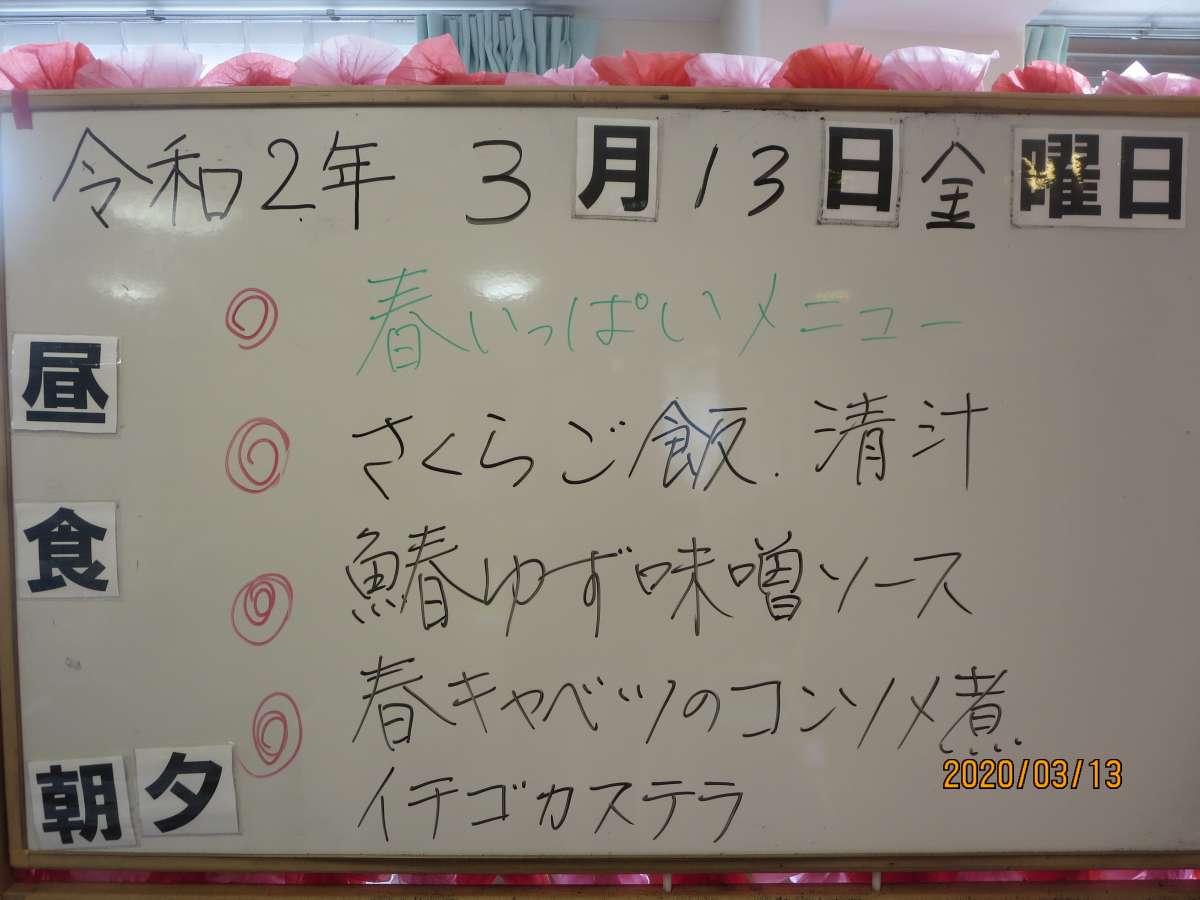 令和2年 3月13日金曜日
春いっぱいメニュー
昼食
さくらご飯.清汁
鰆ゆず味噌ソース
春キャベツのコンソメ煮
イチゴカステラ
朝 夕
2020/03/13